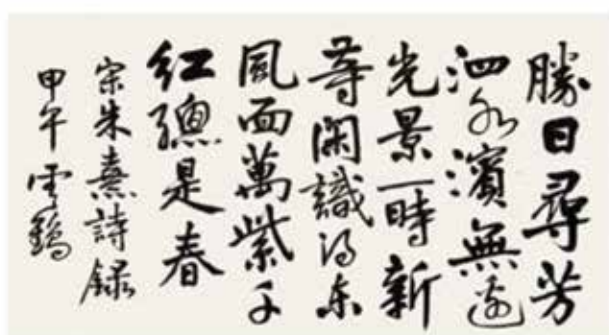 勝日尋芳
泗水濱無邊
光景一時新
等閑識得東
風面萬紫千
紅總是春
宗朱熹詩録
甲午雲鶴